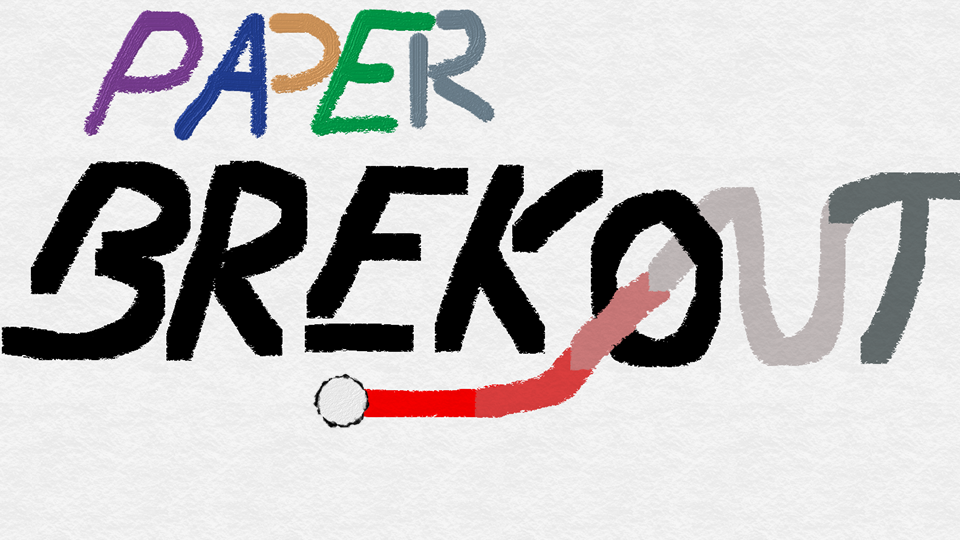 PAPER
BREKOUT